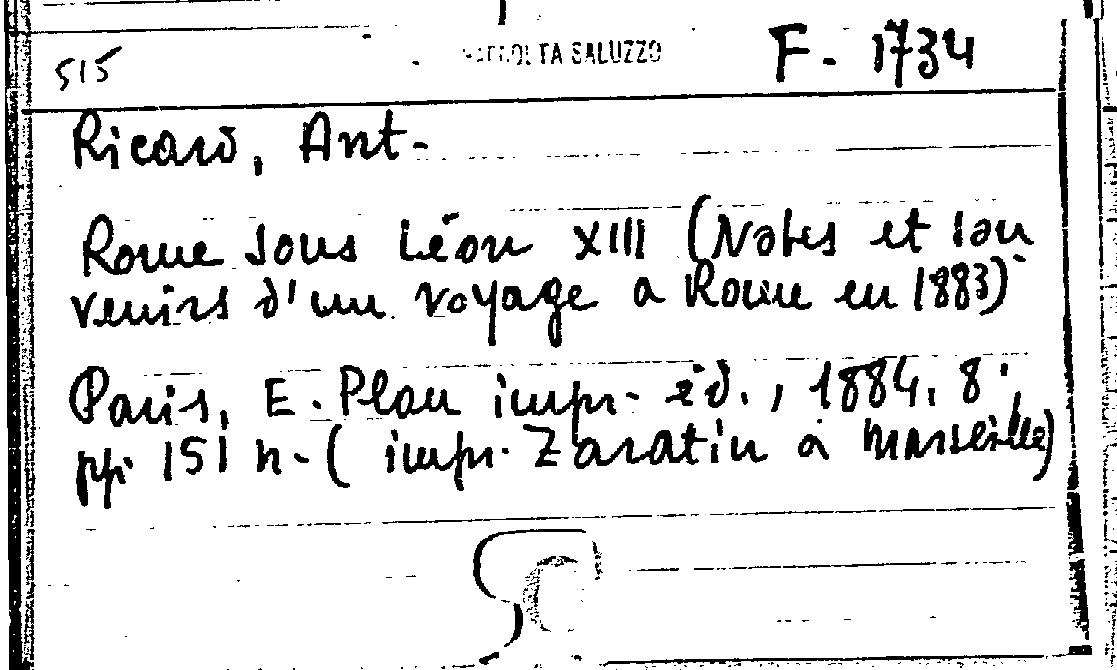 515 RACCOLTA SALUZZO F. 1734
Ricard, Ant.
Rome sous Léon XIII (Notes et sou
venirs d'un voyage a Rome en 1883)
Paris, E. Plon impr. éd., 1884. 8°,
pp. 151 n. (impr. Zaratin a Marseille)